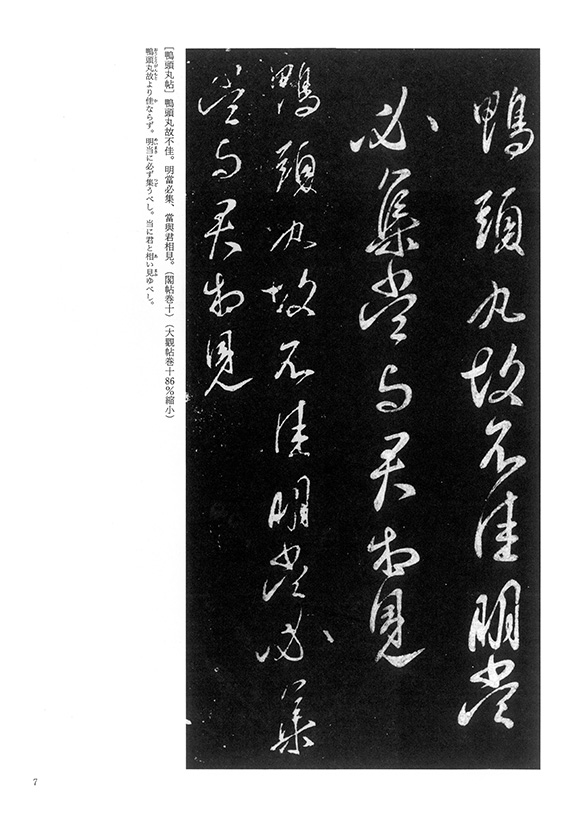 鴨頭丸故不佳明當
必集當與君相見
鴨頭丸故不佳明當必集
當與君相見
［鴨頭丸帖］鴨頭丸故不佳。明當必集、當與君相見。（閣帖巻十）（大觀帖巻十86％縮小）
鴨頭丸故より佳ならず。明当に必ず集うべし。当に君と相い見ゆべし。
7